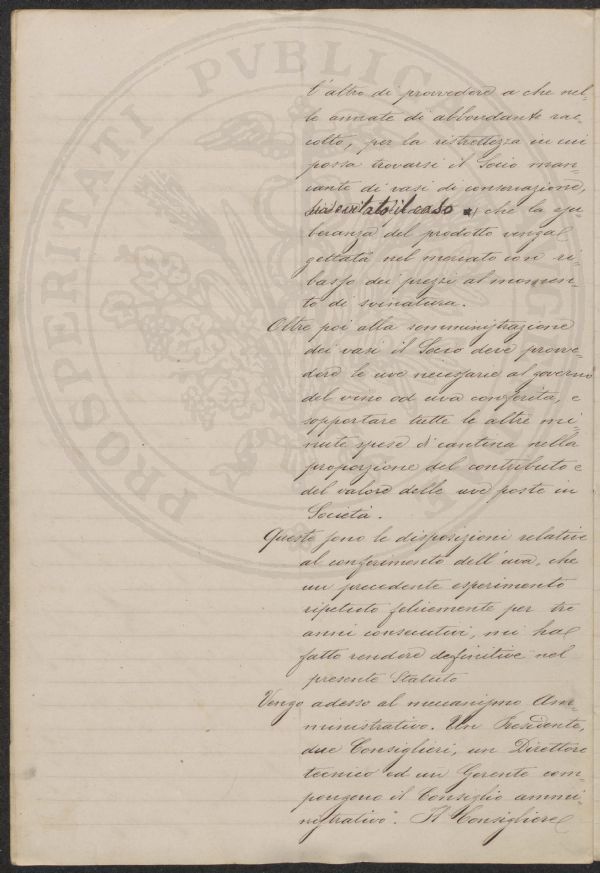 PROSPERITATI PVBLICAE
l'altro di provvedere a che nel-
le annate di abbondante rac-
colto, per la ristrettezza in cui
possa trovarsi il Socio man-
cante di vasi di conservazione,
sia evitato il caso che la esu-
beranza del prodotto venga
gettata nel mercato con ri-
basso dei prezzi al momen-
to di svinatura.
Oltre poi alla somministrazione
dei vasi il Socio deve provve-
dere le uve necessarie al governo
del vino od uva conferita, e
sopportare tutte le altre mi-
nute spese di cantina nella
proporzione del contributo e
del valore delle uve poste in
Società.
Queste sono le disposizioni relative
al conferimento dell'uva, che
un precedente esperimento
ripetuto felicemente per tre
anni consecutivi, mi ha
fatto rendere definitive nel
presente Statuto
Vengo adesso al meccanismo Am-
ministrativo. Un Presidente,
due Consiglieri, un Direttore
tecnico ed un Gerente com-
pongono il Consiglio ammi-
nistrativo. Il Consigliere